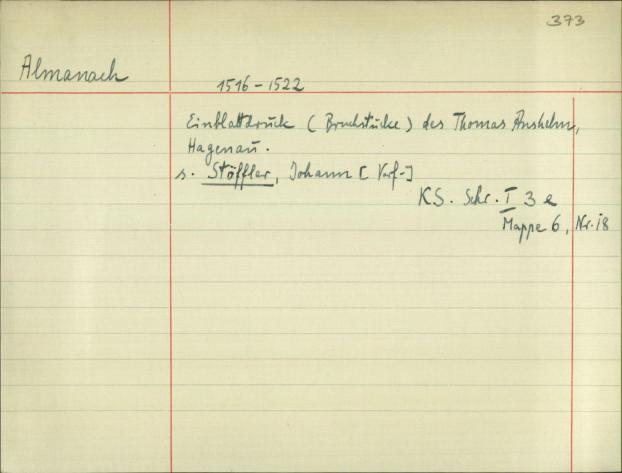 373
Almanach
1516 - 1522
Einblattdruck (Bruchstücke) des Thomas Anshelm,
Hagenau.
s. Stöffler, Johann [Verf.]
KS. Schr. I 3 e
Mappe 6, Nr. 18